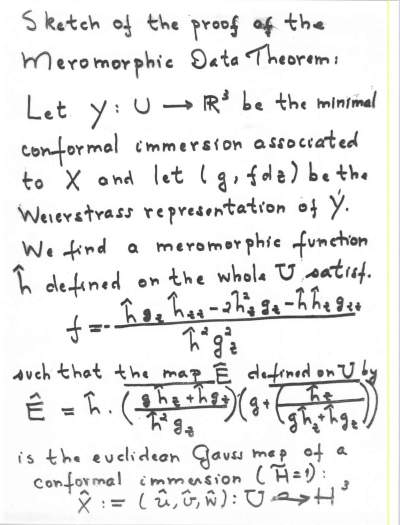 Sketch of the proof of the
Meromorphic Data Theorem:
Let y: U → ℝ³ be the minimal
conformal immersion associated
to X and let (g, fdz) be the
Weierstrass representation of y.
We find a meromorphic function
ĥ defined on the whole U satisf.
f = - (ĥ g_z ĥ_zz - 2ĥ_z² g_z - ĥ ĥ_z g_zz) / (ĥ² g_z²)
such that the map Ê defined on U by
Ê = ĥ · ((g ĥ_z + ĥ g_z) / (ĥ² g_z)) (g + (ĥ_z / (g ĥ_z + ĥ g_z)))
is the euclidean Gauss map of a
conformal immersion (H̃=1):
X̂ := (û, v̂, ŵ): U → H³